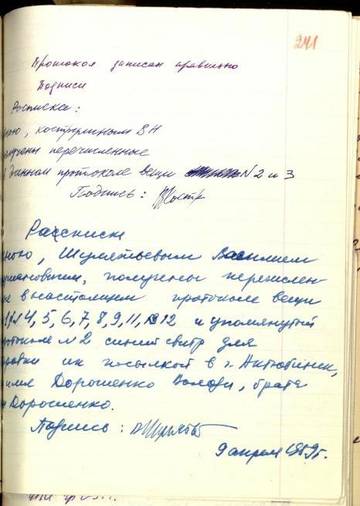 241
Протокол записан правильно
Подписи
Расписка:
мною, Костриминым ВН
получены перечисленные
в данном протоколе вещи N 2 и 3
Подпись:
Расписка
мною, Шулятьевым Василием
получены перечислен
в настоящем протоколе вещи
4, 5, 6, 7, 8, 9, 11, 12 и упомянутый
N 2 синий свитр для
их посылкой в г. Актюбинск,
Дорошенко Володи, брата
Дорошенко.
Подпись:
9 апреля 1959г.